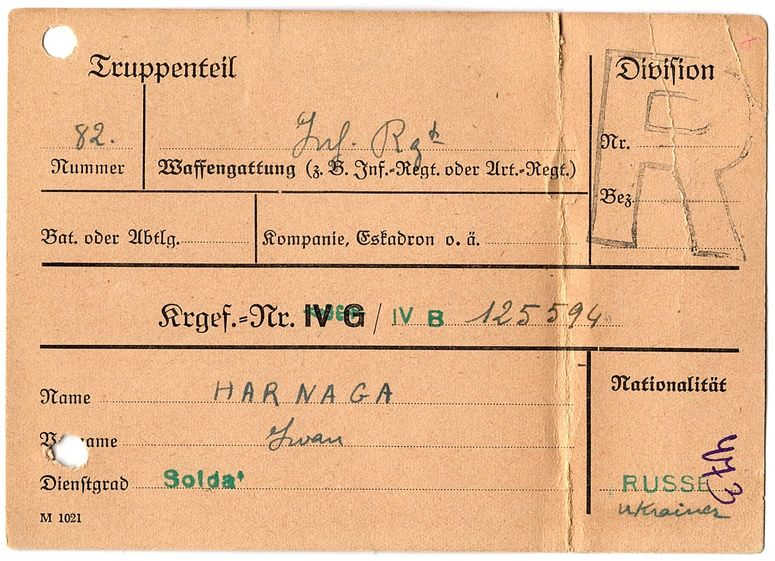 Truppenteil
Division
R
82.
Inf. Rgt
Nr.
Nummer
Waffengattung (z. B. Inf.-Regt. oder Art.-Regt.)
Bez.
Bat. oder Abtlg.
Kompanie, Eskadron o. ä.
Krgef.-Nr. IV G / IV B 125594
Name HARNAGA
Nationalität
Vorname Iwan
Dienstgrad Soldat
RUSSE
Ukrainer
M 1021